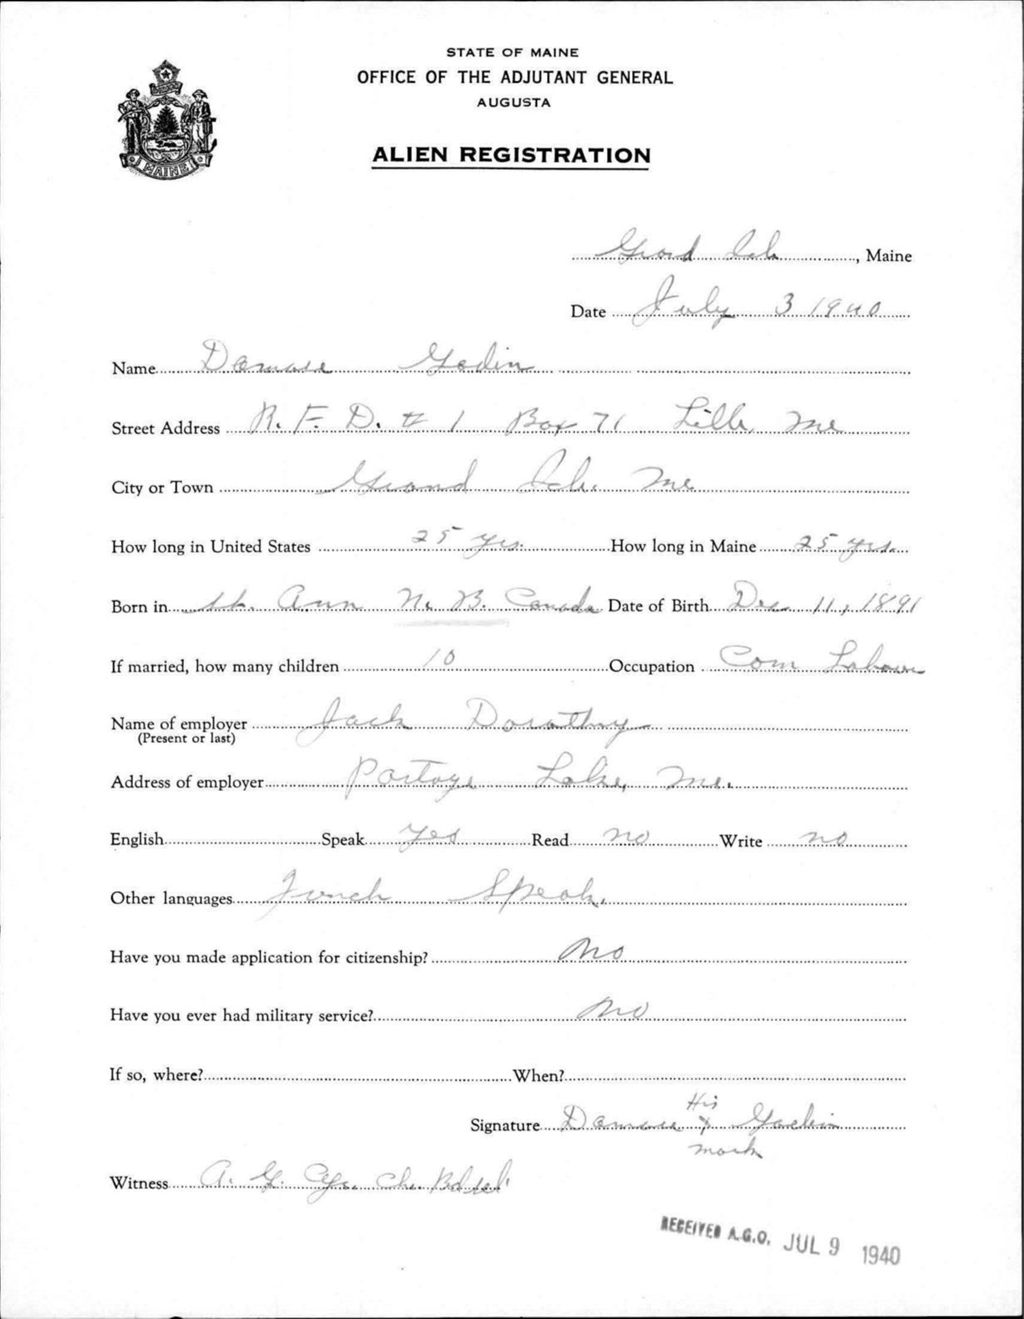 STATE OF MAINE
OFFICE OF THE ADJUTANT GENERAL
AUGUSTA
ALIEN REGISTRATION
MAINE
Grand Isle, Maine
Date July 3 1940
Name Damase Godin
Street Address R. F. D. # 1 Box 71 Lille, Me
City or Town Grand Isle, Me
How long in United States 25 yrs. How long in Maine 25 yrs.
Born in St. Ann N. B. Canada Date of Birth Dec 11, 1891
If married, how many children 10 Occupation Com Labour
Name of employer Jack Dorothy
(Present or last)
Address of employer Portage Lake, Me.
English Speak Yes Read no Write no
Other languages French Speak.
Have you made application for citizenship? No
Have you ever had military service? No
If so, where? When?
His
Signature Damase x Godin
mark
Witness A. G. Cyr. Ch.
RECEIVED A.G.O. JUL 9 1940